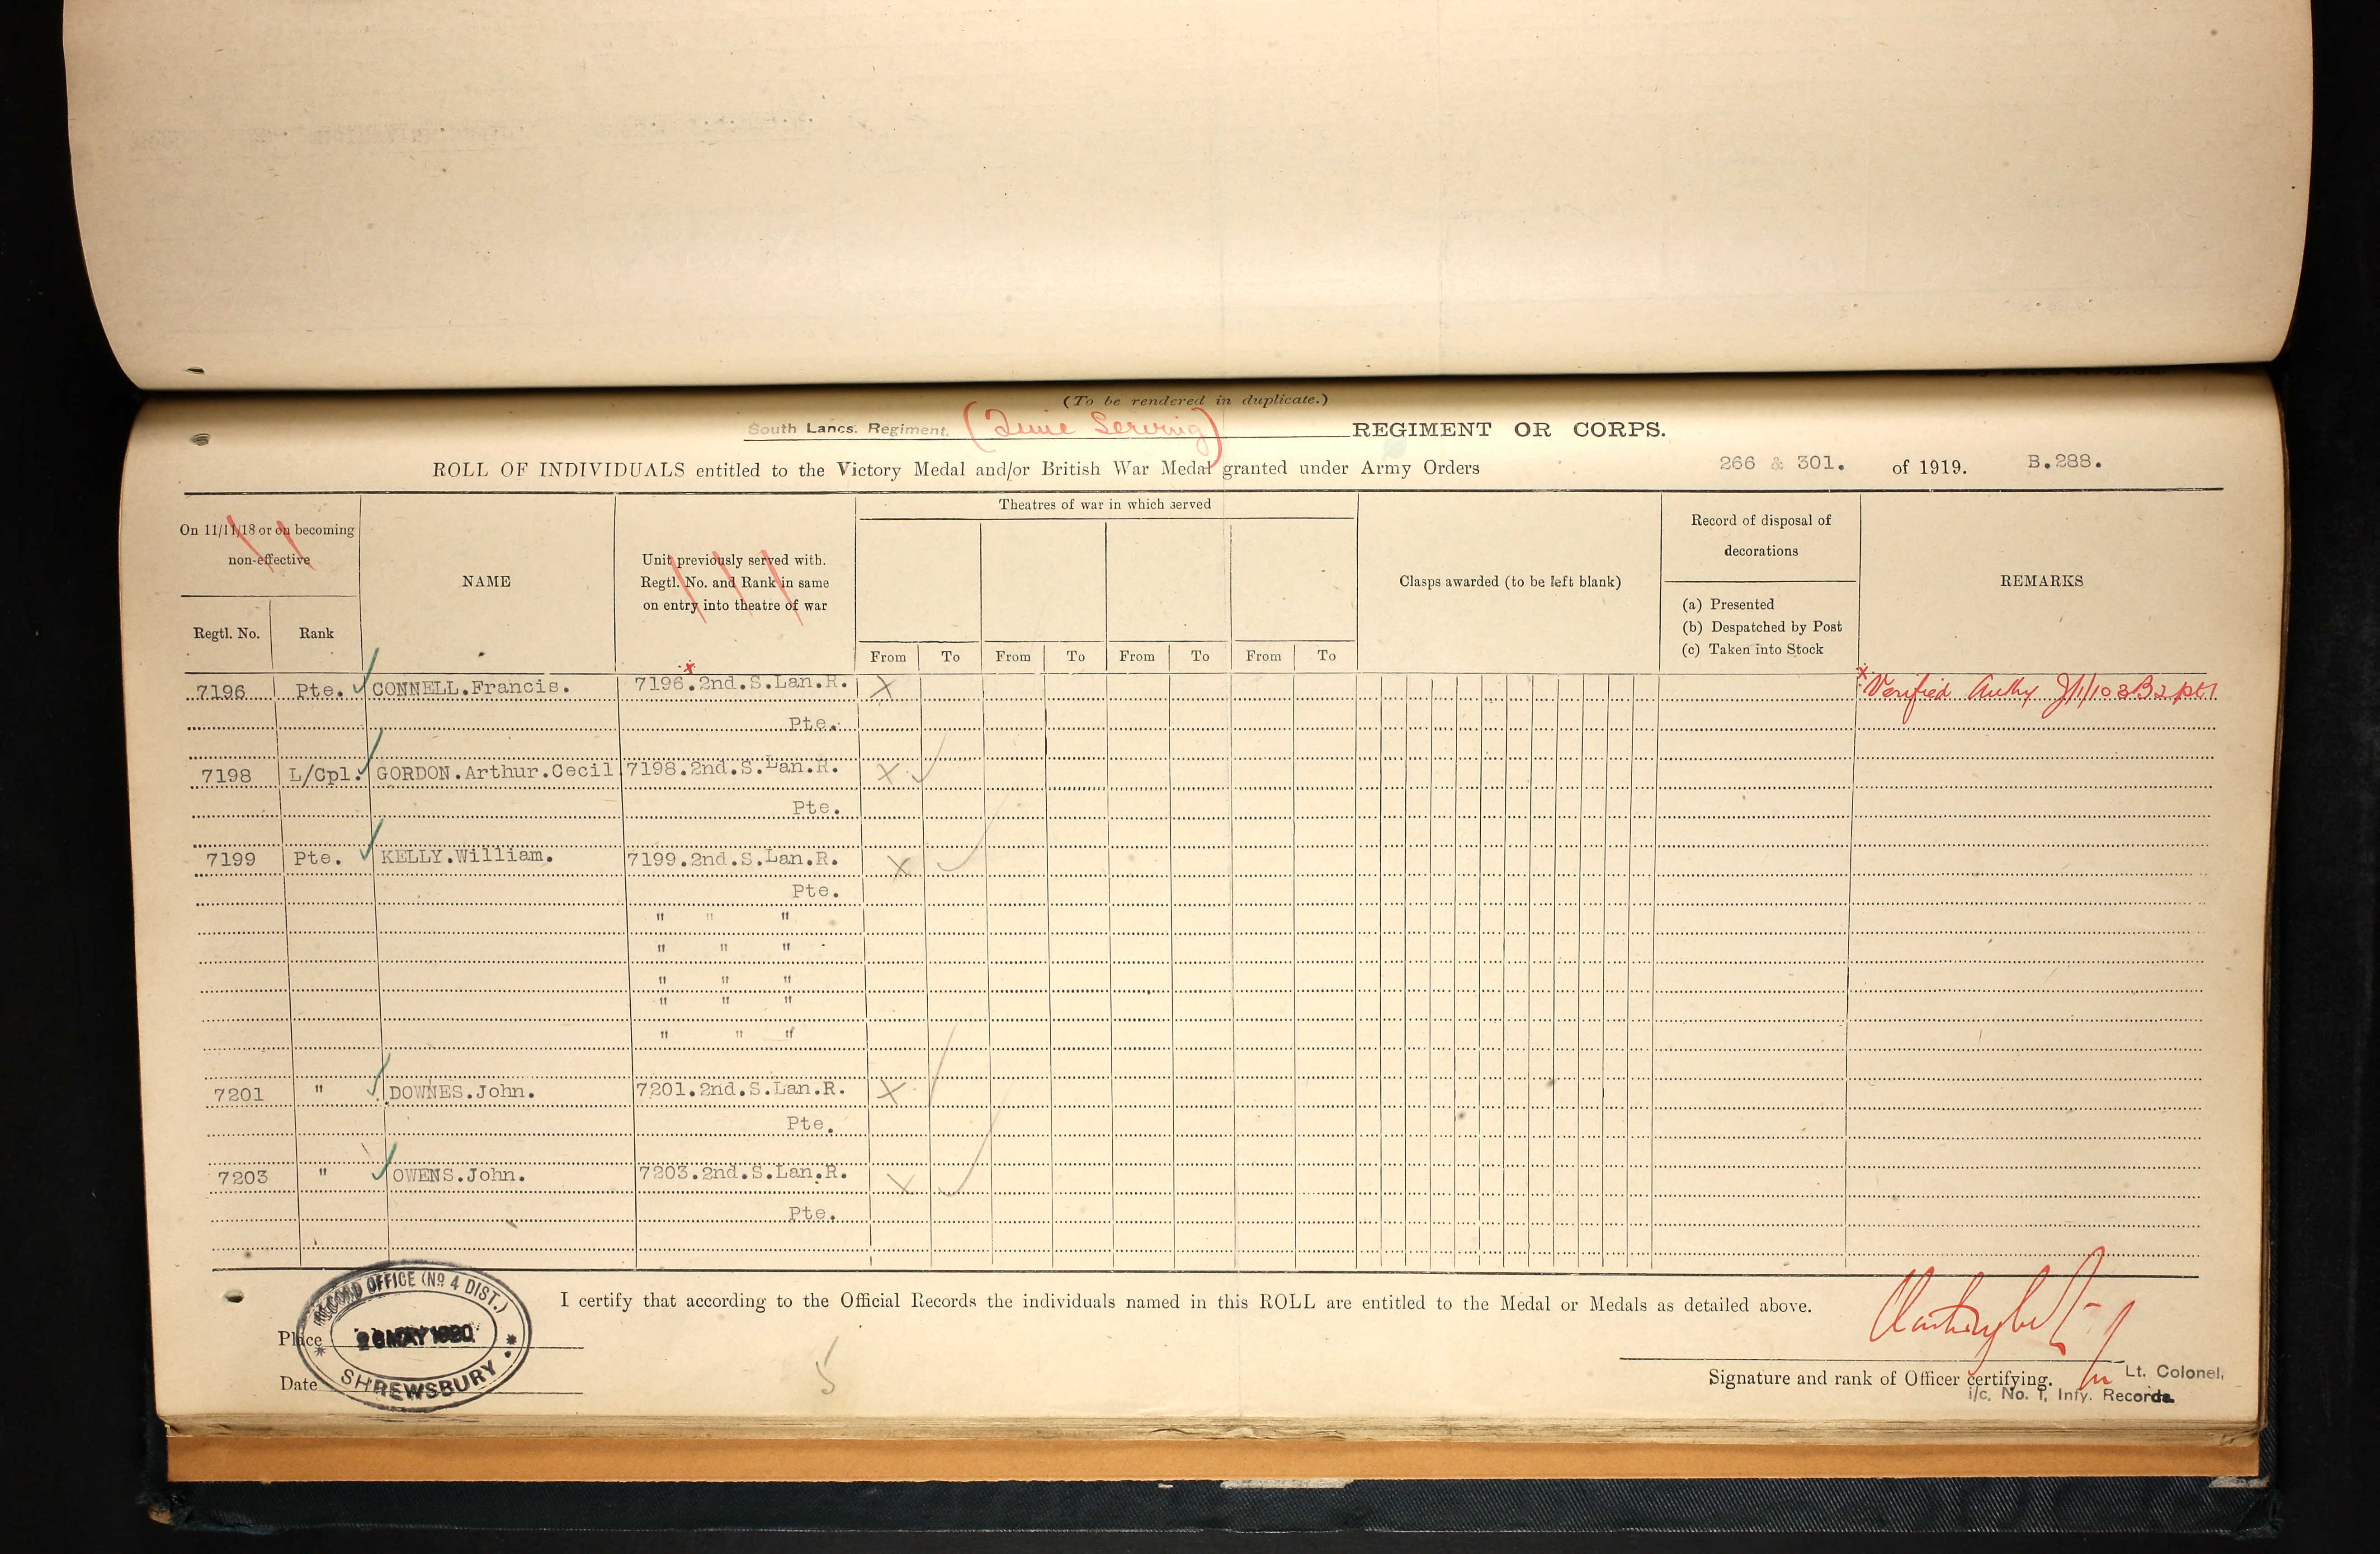 (To be rendered in duplicate.)
South Lancs. Regiment. (Time Serving) REGIMENT OR CORPS.
ROLL OF INDIVIDUALS entitled to the Victory Medal and/or British War Medal granted under Army Orders 266 & 301. of 1919. B.288.
On 11/11/18 or on becoming
non-effective
Regtl. No. Rank
NAME
Unit previously served with.
Regtl. No. and Rank in same
on entry into theatre of war
Theatres of war in which served
From To From To From To From To
Clasps awarded (to be left blank)
Record of disposal of
decorations
(a) Presented
(b) Despatched by Post
(c) Taken into Stock
REMARKS
7196 Pte. CONNELL.Francis. 7196.2nd.S.Lan.R. X x Verified Authy
Pte.
7198 L/Cpl. GORDON.Arthur.Cecil 7198.2nd.S.Lan.R. X
Pte.
7199 Pte. KELLY.William. 7199.2nd.S.Lan.R. X
Pte.
" " "
" " "
" " "
" " "
" " "
7201 " DOWNES.John. 7201.2nd.S.Lan.R. X
Pte.
7203 " OWENS.John. 7203.2nd.S.Lan.R. X
Pte.
I certify that according to the Official Records the individuals named in this ROLL are entitled to the Medal or Medals as detailed above.
RECORD OFFICE (No 4 DIST.)
Place
MAY 1920
SHREWSBURY
Date
Signature and rank of Officer certifying. Lt. Colonel,
i/c. No. 1, Infy. Records.